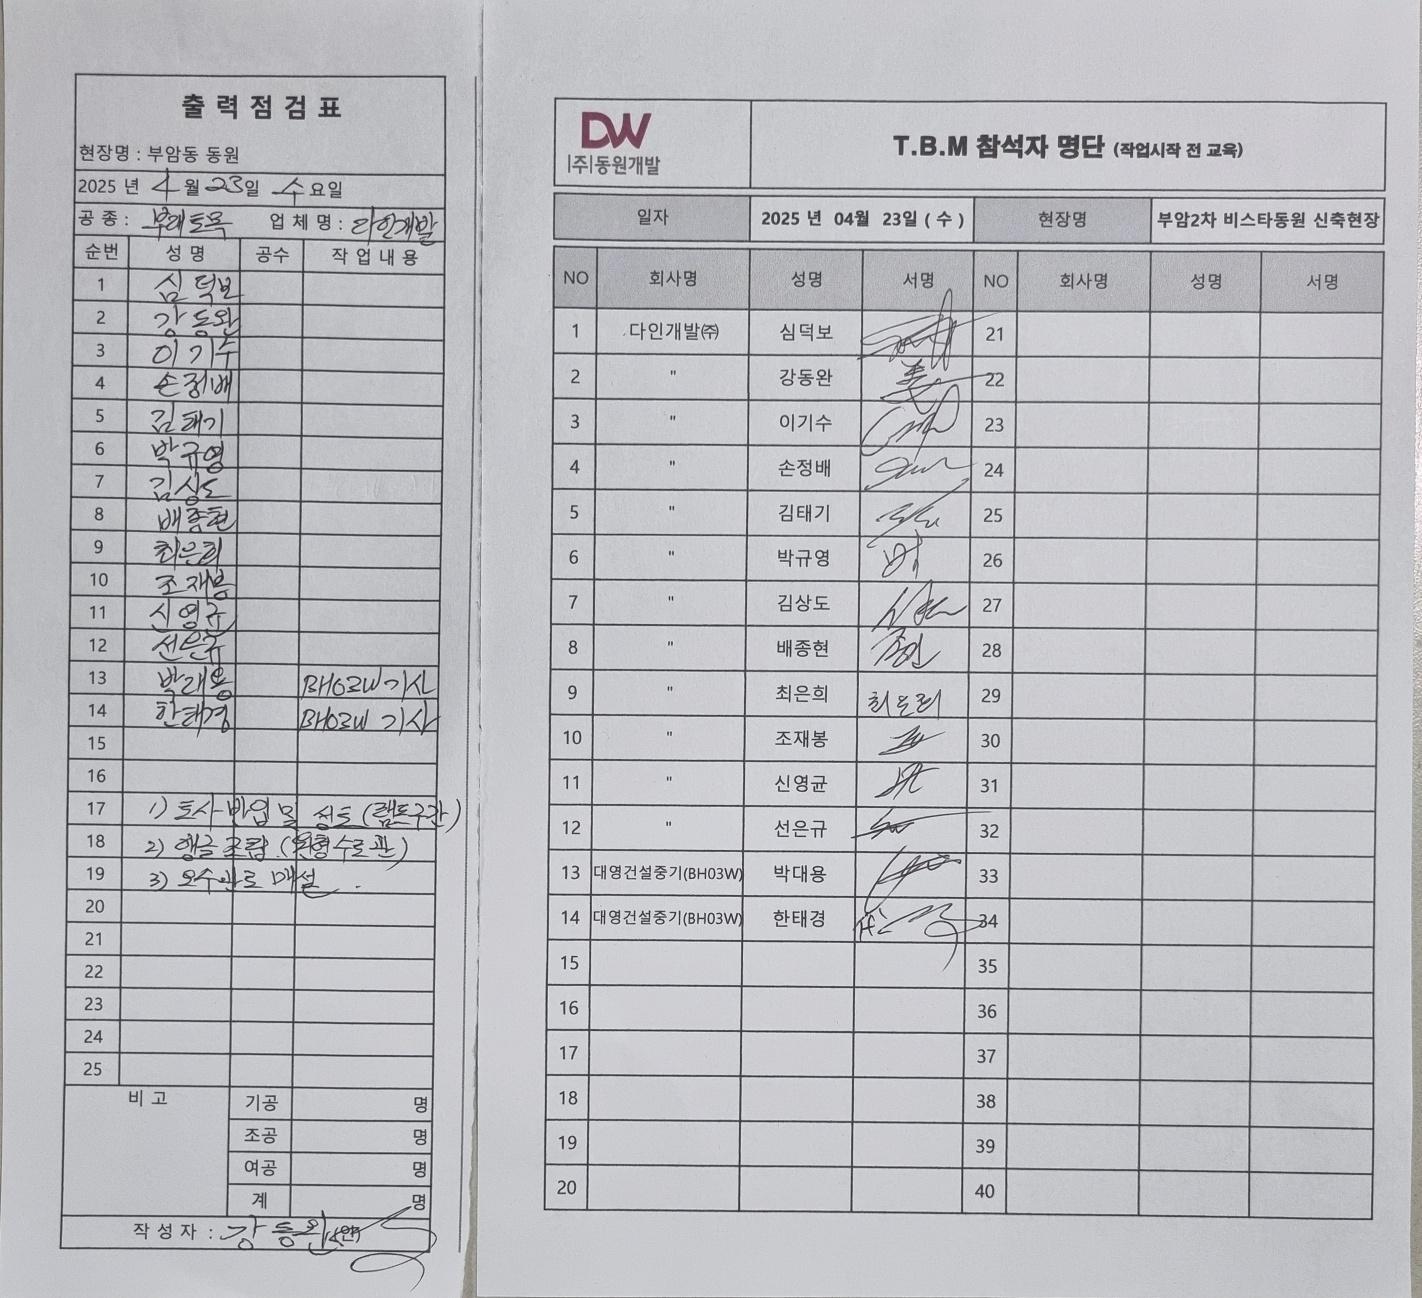 출력점검표
현장명 : 부암동 동원
2025 년 4 월 23 일 수 요일
공 종 : 부대토목 업 체 명 : 다인개발
순번 성 명 공수 작 업 내 용
1 심덕보
2 강동완
3 이기수
4 손정배
5 김태기
6 박규영
7 김상도
8 배종현
9 최은희
10 조재봉
11 신영균
12 선은규
13 박대용 BH03W 기사
14 한태경 BH03W 기사
15
16
17 1) 토사 반입 및 성토 (램프구간)
18 2) 앵글 조립. (원형수로관)
19 3) 오수관로 매설.
20
21
22
23
24
25
비 고
기공 명
조공 명
여공 명
계 명
작 성 자 : 강동완 (인)
DW
(주)동원개발
T.B.M 참석자 명단 (작업시작 전 교육)
일자 2025 년 04월 23일 ( 수 ) 현장명 부암2차 비스타동원 신축현장
NO 회사명 성명 서명 NO 회사명 성명 서명
1 다인개발㈜ 심덕보 21
2 " 강동완 22
3 " 이기수 23
4 " 손정배 24
5 " 김태기 25
6 " 박규영 26
7 " 김상도 27
8 " 배종현 28
9 " 최은희 최은희 29
10 " 조재봉 30
11 " 신영균 31
12 " 선은규 32
13 대영건설중기(BH03W) 박대용 33
14 대영건설중기(BH03W) 한태경 34
15 35
16 36
17 37
18 38
19 39
20 40